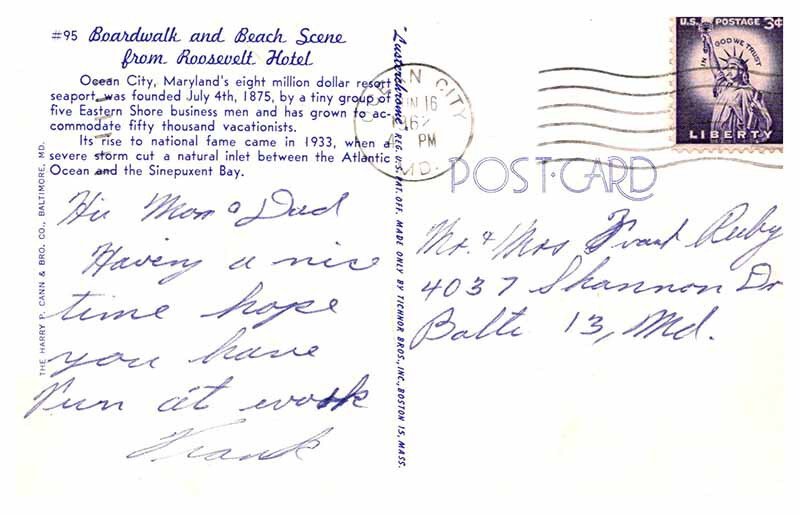 #95 Boardwalk and Beach Scene
from Roosevelt Hotel
Ocean City, Maryland's eight million dollar resort
seaport, was founded July 4th, 1875, by a tiny group of
five Eastern Shore business men and has grown to ac-
commodate fifty thousand vacationists.
Its rise to national fame came in 1933, when a
severe storm cut a natural inlet between the Atlantic
Ocean and the Sinepuxent Bay.
THE HARRY P. CANN & BRO. CO., BALTIMORE, MD.
Hi Mom & Dad
Having a nice
time hope
you have
fun at work
Frank
"Lusterchrome" REG. U.S. PAT. OFF. MADE ONLY BY TICHNOR BROS., INC., BOSTON 15, MASS.
OCEAN CITY
JUN 16
PM
MD.
U.S. POSTAGE 3¢
IN GOD WE TRUST
LIBERTY
POST-CARD
Mr. & Mrs Frank Ruby
4037 Shannon Dr
Balto 13, Md.